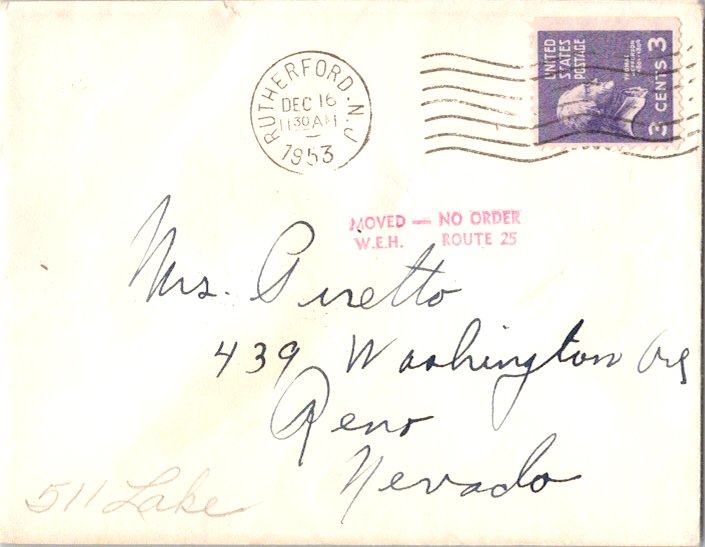 RUTHERFORD. N.J.
DEC 16
11 30 AM
1953
UNITED
STATES
POSTAGE
THOMAS
JEFFERSON
1801-1809
3 CENTS 3
MOVED — NO ORDER
W.E.H. ROUTE 25
Mrs. Giretto
439 Washington
Reno
Nevada
511 Lake